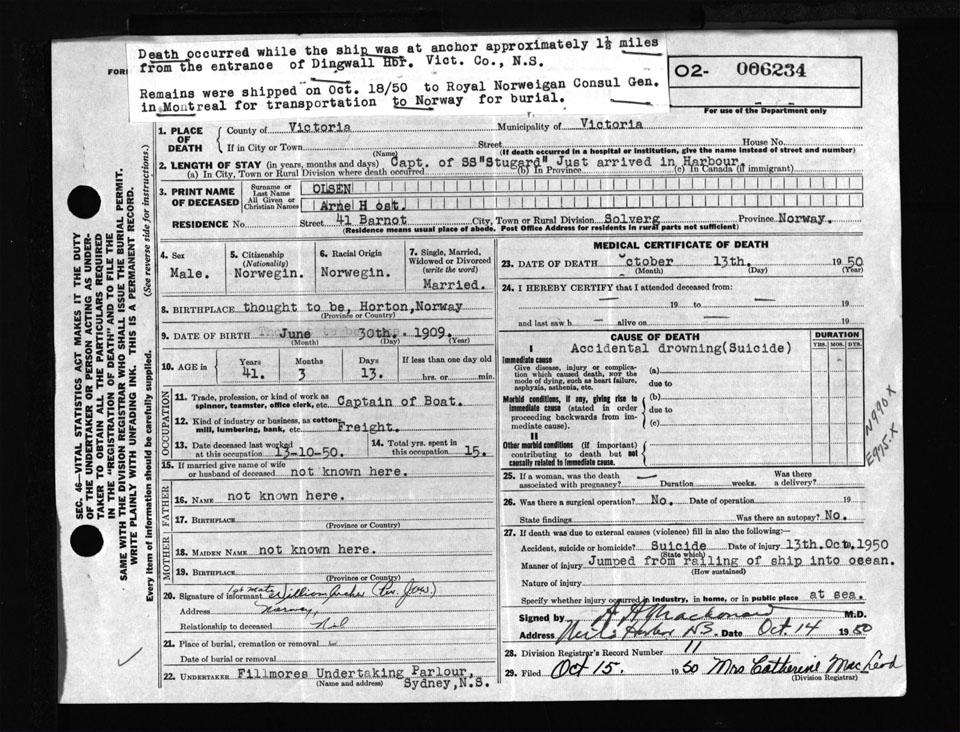 Death occurred while the ship was at anchor approximately 1½ miles
from the entrance of Dingwall Hbr. Vict. Co., N.S.
Remains were shipped on Oct. 18/50 to Royal Norweigan Consul Gen.
in Montreal for transportation to Norway for burial.
FOR
O2- 006234
For use of the Department only
SEC. 46—VITAL STATISTICS ACT MAKES IT THE DUTY
OF THE UNDERTAKER OR PERSON ACTING AS UNDER-
TAKER TO OBTAIN ALL THE PARTICULARS REQUIRED
IN THE "REGISTRATION OF DEATH" AND TO FILE THE
SAME WITH THE DIVISION REGISTRAR WHO SHALL ISSUE THE BURIAL PERMIT.
WRITE PLAINLY WITH UNFADING INK. THIS IS A PERMANENT RECORD.
Every item of information should be carefully supplied. (See reverse side for instructions.)
1. PLACE OF DEATH
County of Victoria Municipality of Victoria
If in City or Town (Name) Street House No.
(If death occurred in a hospital or institution, give the name instead of street and number)
2. LENGTH OF STAY (in years, months and days) Capt. of SS"Stugard" Just arrived in Harbour.
(a) In City, Town or Rural Division where death occurred (b) In Province (c) In Canada (if immigrant)
3. PRINT NAME OF DECEASED
Surname or Last Name OLSEN
All Given or Christian Names Arne H ost.
RESIDENCE No. Street 41 Barnot City, Town or Rural Division Solverg Province Norway.
(Residence means usual place of abode. Post Office Address for residents in rural parts not sufficient)
4. Sex Male.
5. Citizenship (Nationality) Norwegin.
6. Racial Origin Norwegin.
7. Single, Married, Widowed or Divorced (write the word) Married.
8. BIRTHPLACE thought to be, Horton, Norway
(Province or Country)
9. DATE OF BIRTH June 30th. 1909.
(Month) (Day) (Year)
10. AGE in Years 41. Months 3 Days 13. If less than one day old hrs. or min.
OCCUPATION
11. Trade, profession, or kind of work as spinner, teamster, office clerk, etc. Captain of Boat.
12. Kind of industry or business, as cotton mill, lumbering, bank, etc. Freight.
13. Date deceased last worked at this occupation 13-10-50.
14. Total yrs. spent in this occupation 15.
15. If married give name of wife or husband of deceased not known here.
FATHER
16. NAME not known here.
17. BIRTHPLACE
(Province or Country)
MOTHER
18. MAIDEN NAME not known here.
19. BIRTHPLACE
(Province or Country)
20. Signature of informant 1st mate William
Address Norway,
Relationship to deceased Nil
21. Place of burial, cremation or removal
Date of burial or removal
22. UNDERTAKER Fillmores Undertaking Parlour,
(Name and address) Sydney, N.S.
MEDICAL CERTIFICATE OF DEATH
23. DATE OF DEATH October 13th. 1950
(Month) (Day) (Year)
24. I HEREBY CERTIFY that I attended deceased from:
— 19 to — 19
and last saw h — alive on — 19
CAUSE OF DEATH
DURATION
YRS. MOS. DYS.
I Accidental drowning(Suicide)
Immediate cause
Give disease, injury or complication which caused death, NOT the mode of dying, such as heart failure, asphyxia, asthenia, etc.
(a)
due to
Morbid conditions, if any, giving rise to immediate cause (stated in order proceeding backwards from immediate cause).
(b)
due to
(c)
II
Other morbid conditions (if important) contributing to death but not causally related to immediate cause.
N990X
E975.X
25. If a woman, was the death associated with pregnancy? — Duration weeks. Was there a delivery?
26. Was there a surgical operation? No. Date of operation 19
State findings Was there an autopsy? No.
27. If death was due to external causes (violence) fill in also the following:—
Accident, suicide or homicide? Suicide Date of injury 13th.Oct. 1950
(State which)
Manner of injury Jumped from railing of ship into ocean.
(How sustained)
Nature of injury
Specify whether injury occurred in industry, in home, or in public place at sea.
Signed by M.D.
Address Neil's Harbor NS. Date Oct. 14 1950
28. Division Registrar's Record Number 11
29. Filed Oct 15. 1950 Mrs Catherine MacLeod
(Division Registrar)